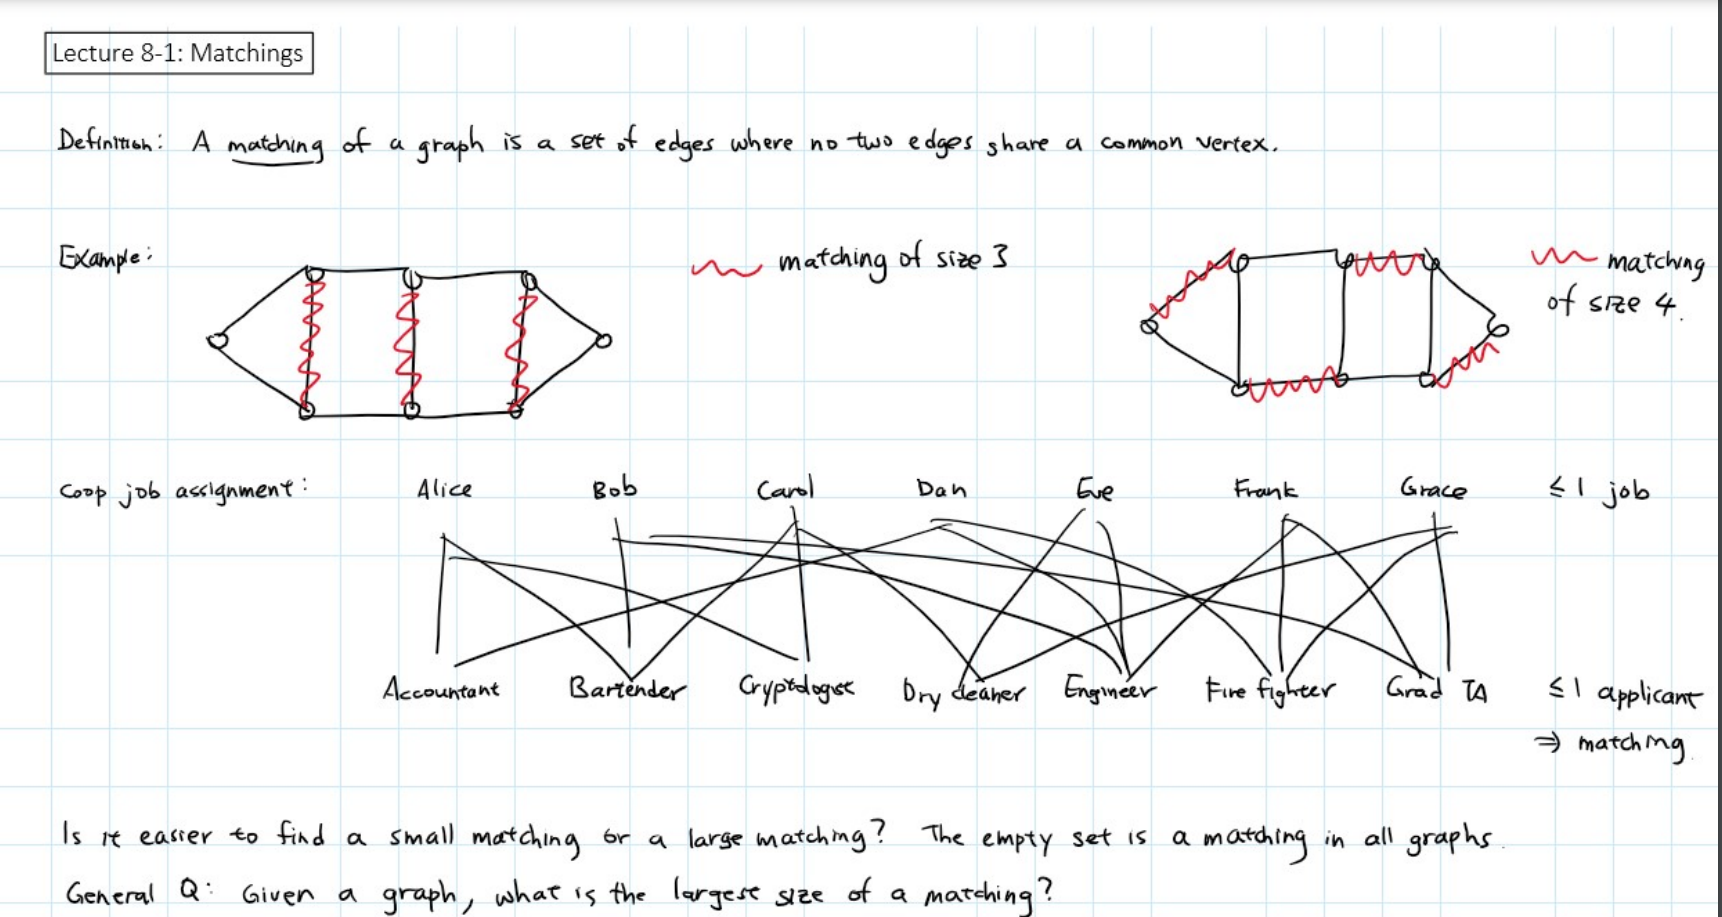 Lecture 8-1: Matchings
Definition: A matching of a graph is a set of edges where no two edges share a common vertex.
Example: matching of size 3 matching
of size 4.
Coop job assignment: Alice Bob Carol Dan Eve Frank Grace ≤ 1 job
Accountant Bartender Cryptologist Dry cleaner Engineer Fire fighter Grad TA ≤ 1 applicant
⇒ matching.
Is it easier to find a small matching or a large matching? The empty set is a matching in all graphs.
General Q: Given a graph, what is the largest size of a matching?